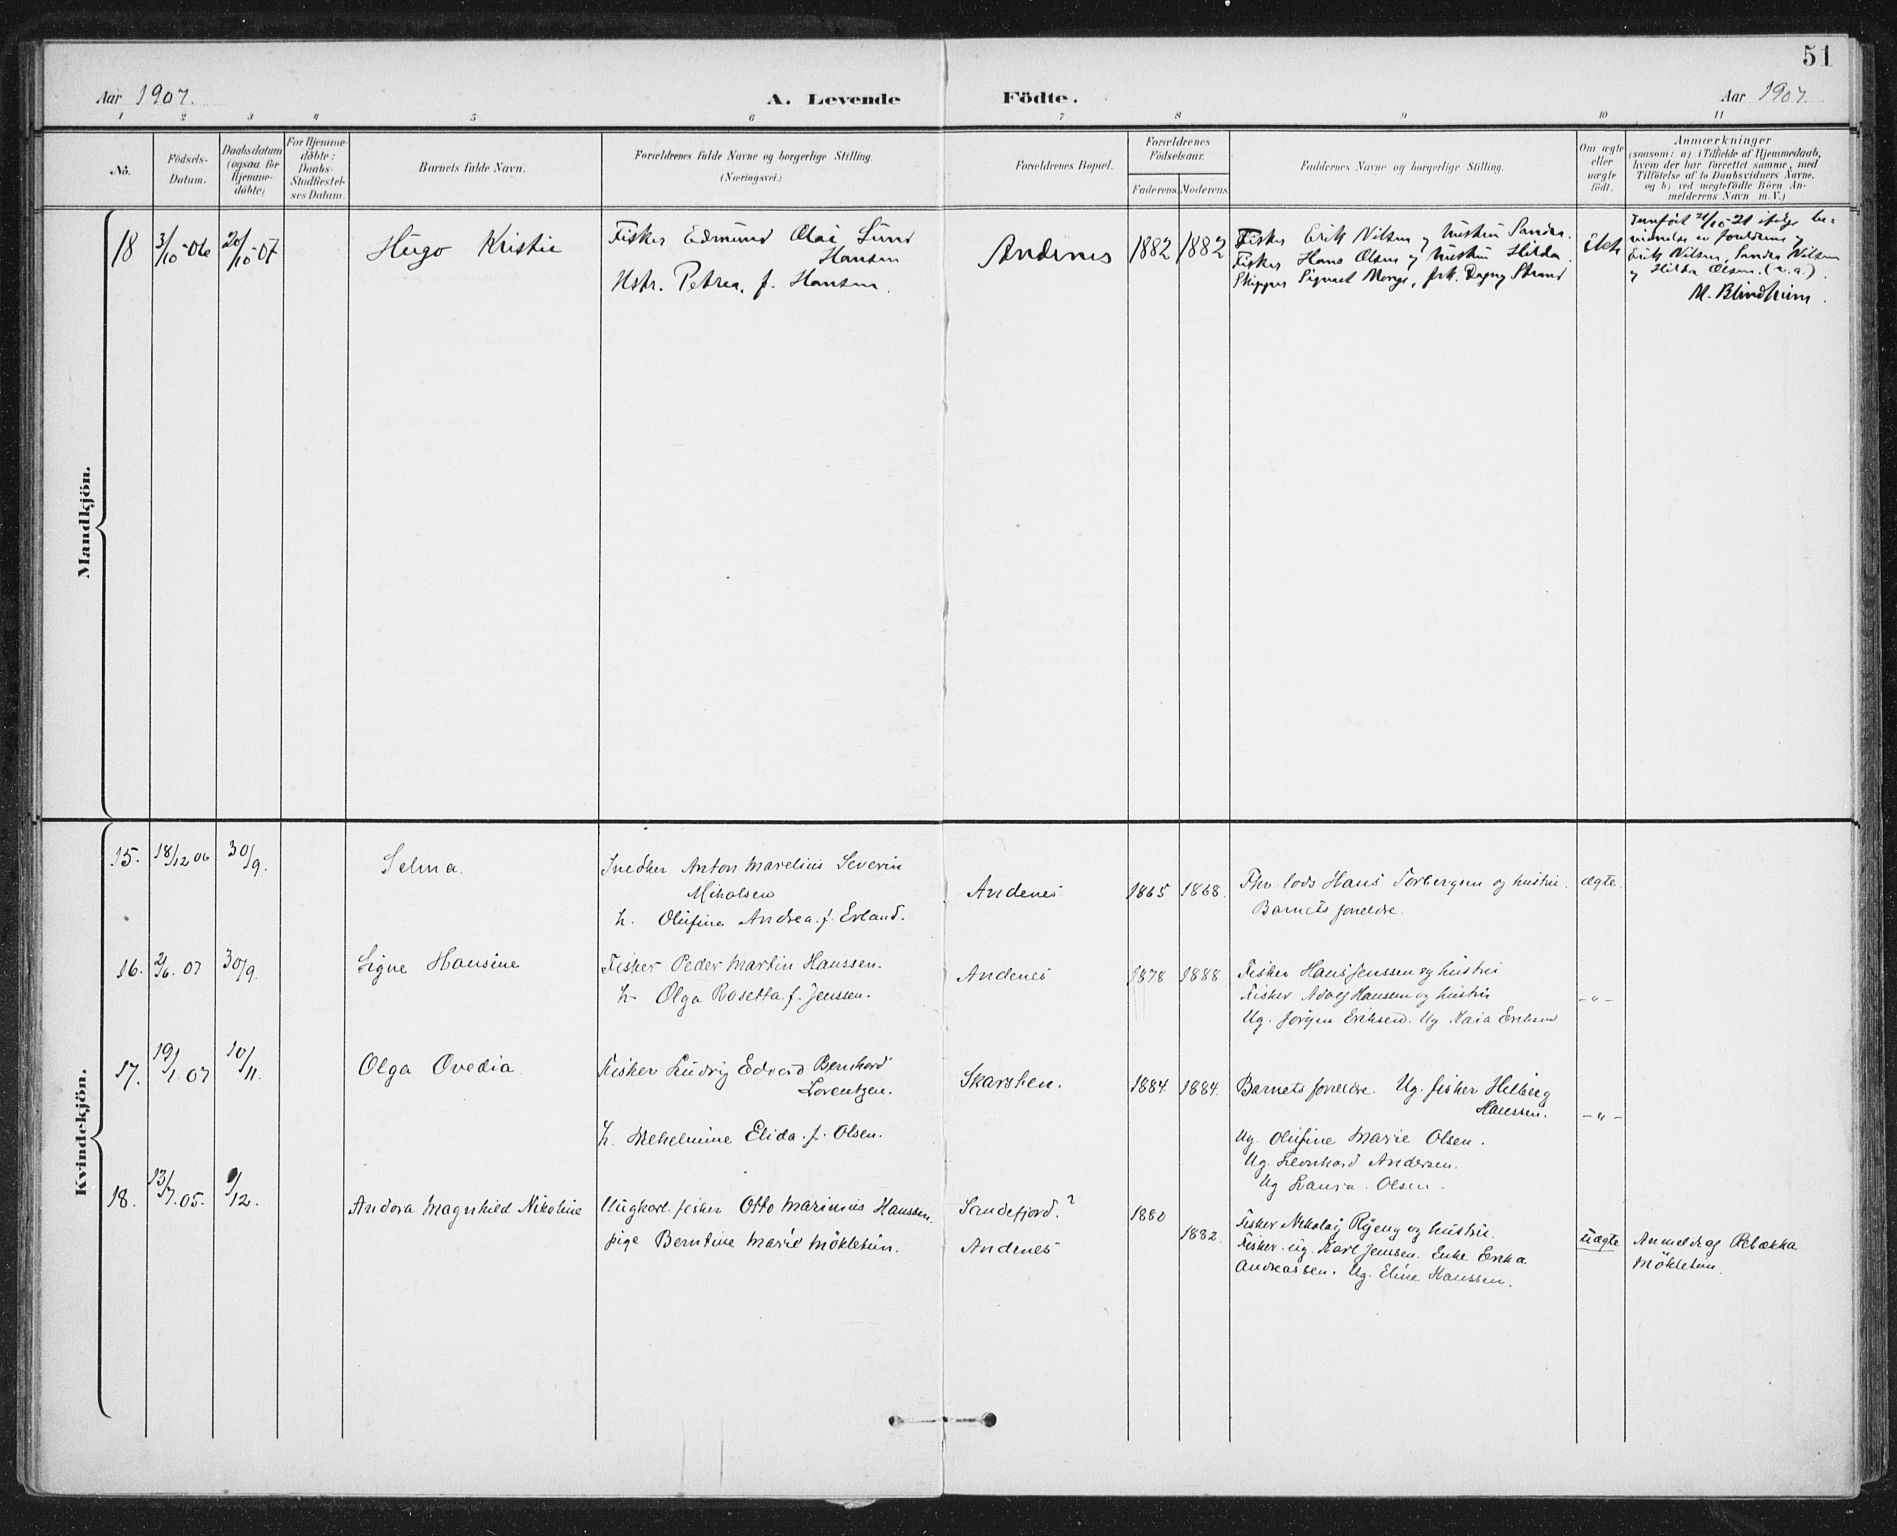 51
Aar 1907.
A. Levende Födte.
Aar 1907.
1 2 3 4 5 6 7 8 9 10 11
No.
Födsels-
Datum.
Daabsdatum
(ogsaa for
Hjemme-
döbte)
For Hjemme-
döbte:
Daabs-
Stadfæstel-
ses Datum.
Barnets fulde Navn.
Forældrenes fulde Navne og borgerlige Stilling.
(Næringsvei.)
Forældrenes Bopæl.
Forældrenes
Födselsaar.
Faderens. Moderens.
Faddernes Navne og borgerlige Stilling.
Om ægte
eller
uægte
født.
Anmærkninger
(saasom: a) i Tilfælde af Hjemmedaab,
hvem der har forrettet samme, med
Tilföielse af to Daabsvidners Navne.
og b) ved uægtefödte Börn An-
melderens Navn m. V.)
Mandkjön.
18
3/10-06
20/10-07
Hugo Kristie
Fisker Edmund Olai Lund
Hansen
Hstr. Petrea, f. Hansen.
Andenes
1882 1882
Fisker Erik Nilsen og hustru Sanda.
Fisker Hans Olsen og hustru Hilda.
Skipper Sigvart Monge, frk. Dagny Strand
Ekte
Innført 21/10-21 ifølge be-
vidnelse av foreldrene og
Erik Nilsen, Sanda Nilsen
og Hilda Olsen. (v.a.).
M. Blindheim.
Kvindekjön.
15.
18/12 06
30/9.
Selma.
Snedker Anton Marelius Severin
Mikalsen
h. Olufine Andrea f. Erland.
Andenes
1865 1868.
Fhv. lods Hans Torbergsen og hustru.
Barnets foreldre.
ægte
16.
2/6. 07
30/9.
Signe Hansine
Fisker Peder Martin Hanssen.
h. Olga Rosetta f. Jenssen.
Andenes
1878 1888
Fisker Hans Jenssen og hustru
Fisker Adolf Hanssen og hustru
Ug. Jørgen Eriksen. Ug Kaia Eriksen
-"-
17.
19/1. 07
10/11.
Olga Ovedia.
Fisker Ludvig Edvard Bernhard
Lorentzen.
h. Vilhelmine Elida f. Olsen.
Skarsten.
1884 1884.
Barnets foreldre. Ug. fisker Hilberg
Hanssen.
Ug. Olufine Marie Olsen.
Ug. Leonhard Andersen.
Ug Laura Olsen
-"-
18.
13/7. 05.
9/12.
Andora Magnhild Nikoline
Ungkarl fisker Otto Marinius Hanssen.
pige Berntine Marie Mökletun.
Sandefjord.?
Andenes
1880
1882.
Fisker Nikolaj Ryeng og hustru.
Fisker ug. Karl Jenssen. Enke Erika
Andreassen. Ug. Eline Hanssen.
uægte
Anmeldt af Rebækka
Mökletun.